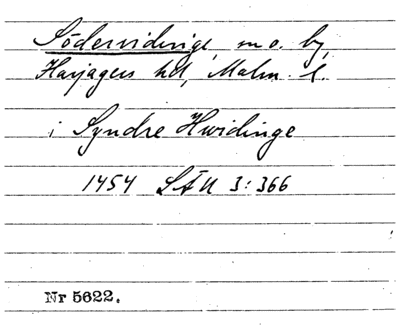 Södervidinge, sn o. by,
Harjagers hd, Malm. l.
i Syndre Hwidinge
1454 SÄU 3:366
Nr 5622.